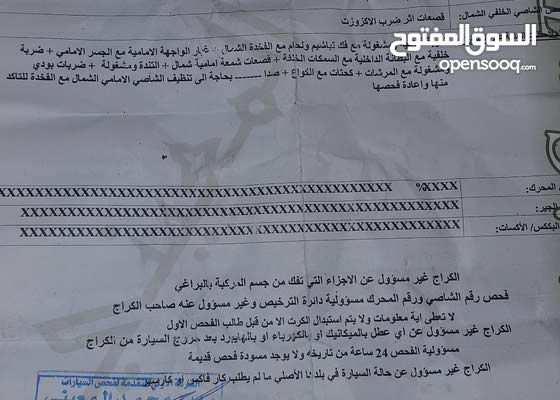 ص الشاصي الخلفي الشمال: قصعات اثر ضرب الاكزوزت
السوق المفتوح
opensooq.com
مشغولة مع فك تباشيم ولحام مع الفخدة الشمال + غيار الواجهة الامامية مع الجسر الامامي + ضربة
خلفية مع البطانة الداخلية مع السمكات الخلفية + قصعات شمعة امامية شمال + التندة ومشغولة + ضربات بودي
ومشغولة مع المرشات + كحتات مع الكواع + صدا ــــــــ بحاجة الى تنظيف الشأصي الامامي الشمال مع الفخدة للتاكد
منها واعادة فحصها
المحرك: %XXXX XXXXXXXXXXXXXXXXXXXXXXXXXXXXXXXXXXXXXXXXXXXX
الجير: XXXXXXXXXXXXXXXXXXXXXXXXXXXXXXXXXXXXXXXXXXXXXXXX
البكس/ الأكسات: XXXXXXXXXXXXXXXXXXXXXXXXXXXXXXXXXXXXXXXXXXXXXXXX
الكراج غير مسؤول عن الاجزاء التي تفك من جسم المركبة بالبراغي
فحص رقم الشاصي ورقم المحرك مسؤولية دائرة الترخيص وغير مسؤول عنه صاحب الكراج
لا تعطى اية معلومات ولا يتم استبدال الكرت الا من قبل طالب الفحص الاول
الكراج غير مسؤول عن اي عطل بالميكانيك أو بالكهرباء او بالهايبرد بعد خروج السيارة من الكراج
مسؤولية الفحص 24 ساعة من تاريخه ولا يوجد مسودة فحص قديمة
الكراج غير مسؤول عن حالة السيارة في بلد الأصلي ما لم يطلب كار فاكس أو كارسير
لفحص السيارات